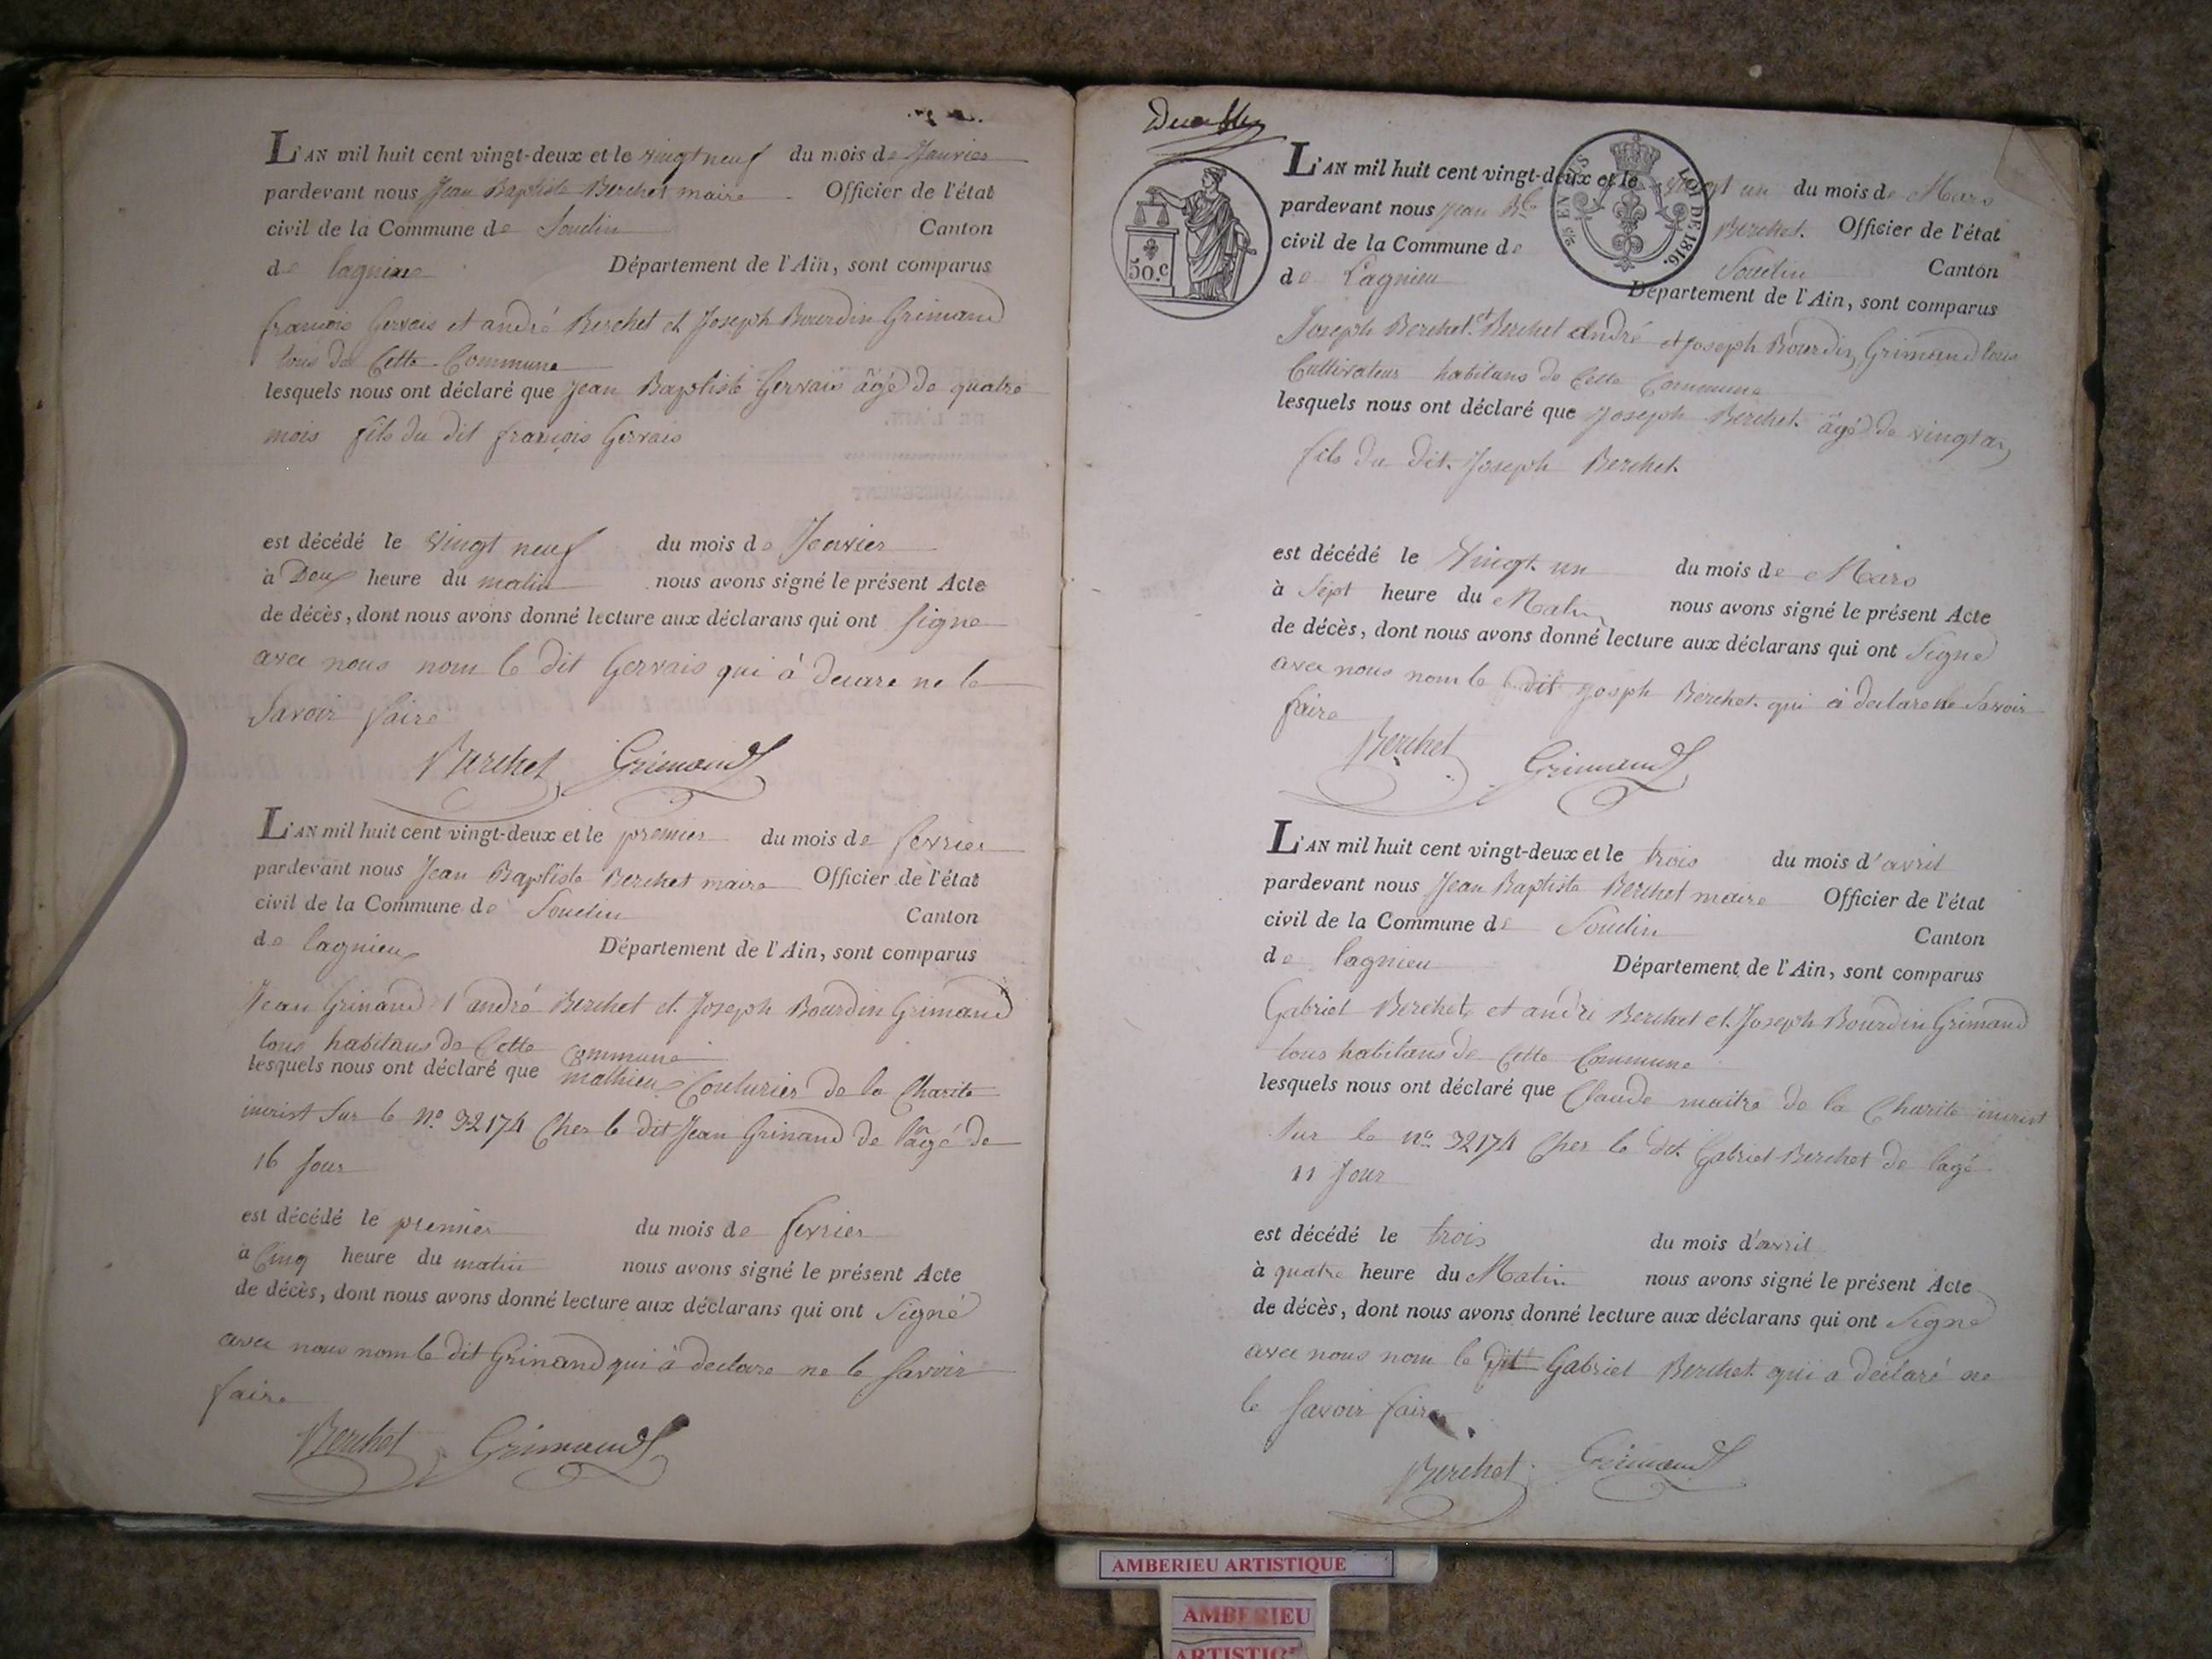 L'AN mil huit cent vingt-deux et le vingt neuf du mois de Janvier
pardevant nous Jean Baptiste Berchet maire Officier de l'état
civil de la Commune de Soudin Canton
de lagnieu Département de l'Ain, sont comparus
françois Gervais et andré Berchet et Joseph Bourdin Grimand
tous de Cette Commune
lesquels nous ont déclaré que Jean Baptiste Gervais âgé de quatre
mois fils du dit françois Gervais
est décédé le vingt neuf du mois de Janvier
à Deux heure du matin nous avons signé le présent Acte
de décès, dont nous avons donné lecture aux déclarans qui ont signe
avec nous nom le dit Gervais qui à declare ne le
Savoir faire
Berchet Grimaud
L'AN mil huit cent vingt-deux et le premier du mois de fevrier
pardevant nous Jean Baptiste Berchet maire Officier de l'état
civil de la Commune de Soudin Canton
de lagnieu Département de l'Ain, sont comparus
Jean Grinand et andré Berchet et Joseph Bourdin Grimand
tous habitans de Cette Commune
lesquels nous ont déclaré que mathieu Couturier de la Charite
inscrit Sur le No. 32174 Cher le dit Jean Grinand de l'agé de
16 Jour
est décédé le premier du mois de fevrier
à Cinq heure du matin nous avons signé le présent Acte
de décès, dont nous avons donné lecture aux déclarans qui ont Signé
avec nous nom le dit Grinand qui à declare ne le Savoir
faire
Berchet Grimaud
50.C
2/5 EN SUS LOI DE 1816.
L'AN mil huit cent vingt-deux et le vingt un du mois de Mars
pardevant nous Jean Bte Berchet Officier de l'état
civil de la Commune de Soudin Canton
de Lagnieu Département de l'Ain, sont comparus
Joseph Berchet et Berchet André et Joseph Bourdin Grimand tous
Cultivateur habitans de Cette Commune
lesquels nous ont déclaré que Joseph Berchet âgé de vingt an
fils du dit Joseph Berchet
est décédé le Vingt un du mois de Mars
à Sept heure du Matin nous avons signé le présent Acte
de décès, dont nous avons donné lecture aux déclarans qui ont Signé
avec nous nom le dit Joseph Berchet qui à declare ne Savoir
faire
Berchet Grimaud
L'AN mil huit cent vingt-deux et le trois du mois d'avril
pardevant nous Jean Baptiste Berchet maire Officier de l'état
civil de la Commune de Soudin Canton
de lagnieu Département de l'Ain, sont comparus
Gabriel Berchet et andré Berchet et Joseph Bourdin Grimand
tous habitans de Cette Commune
lesquels nous ont déclaré que Claude maitre de la Charité inscrit
Sur le no. 32174 Cher le dit Gabriel Berchet de l'agé
11 Jour
est décédé le trois du mois d'avril
à quatre heure du Matin nous avons signé le présent Acte
de décès, dont nous avons donné lecture aux déclarans qui ont Signé
avec nous nom le dit Gabriel Berchet qui a déclaré ne
le Savoir faire
Berchet Grimaud
AMBERIEU ARTISTIQUE
AMBERIEU
ARTISTIQUE